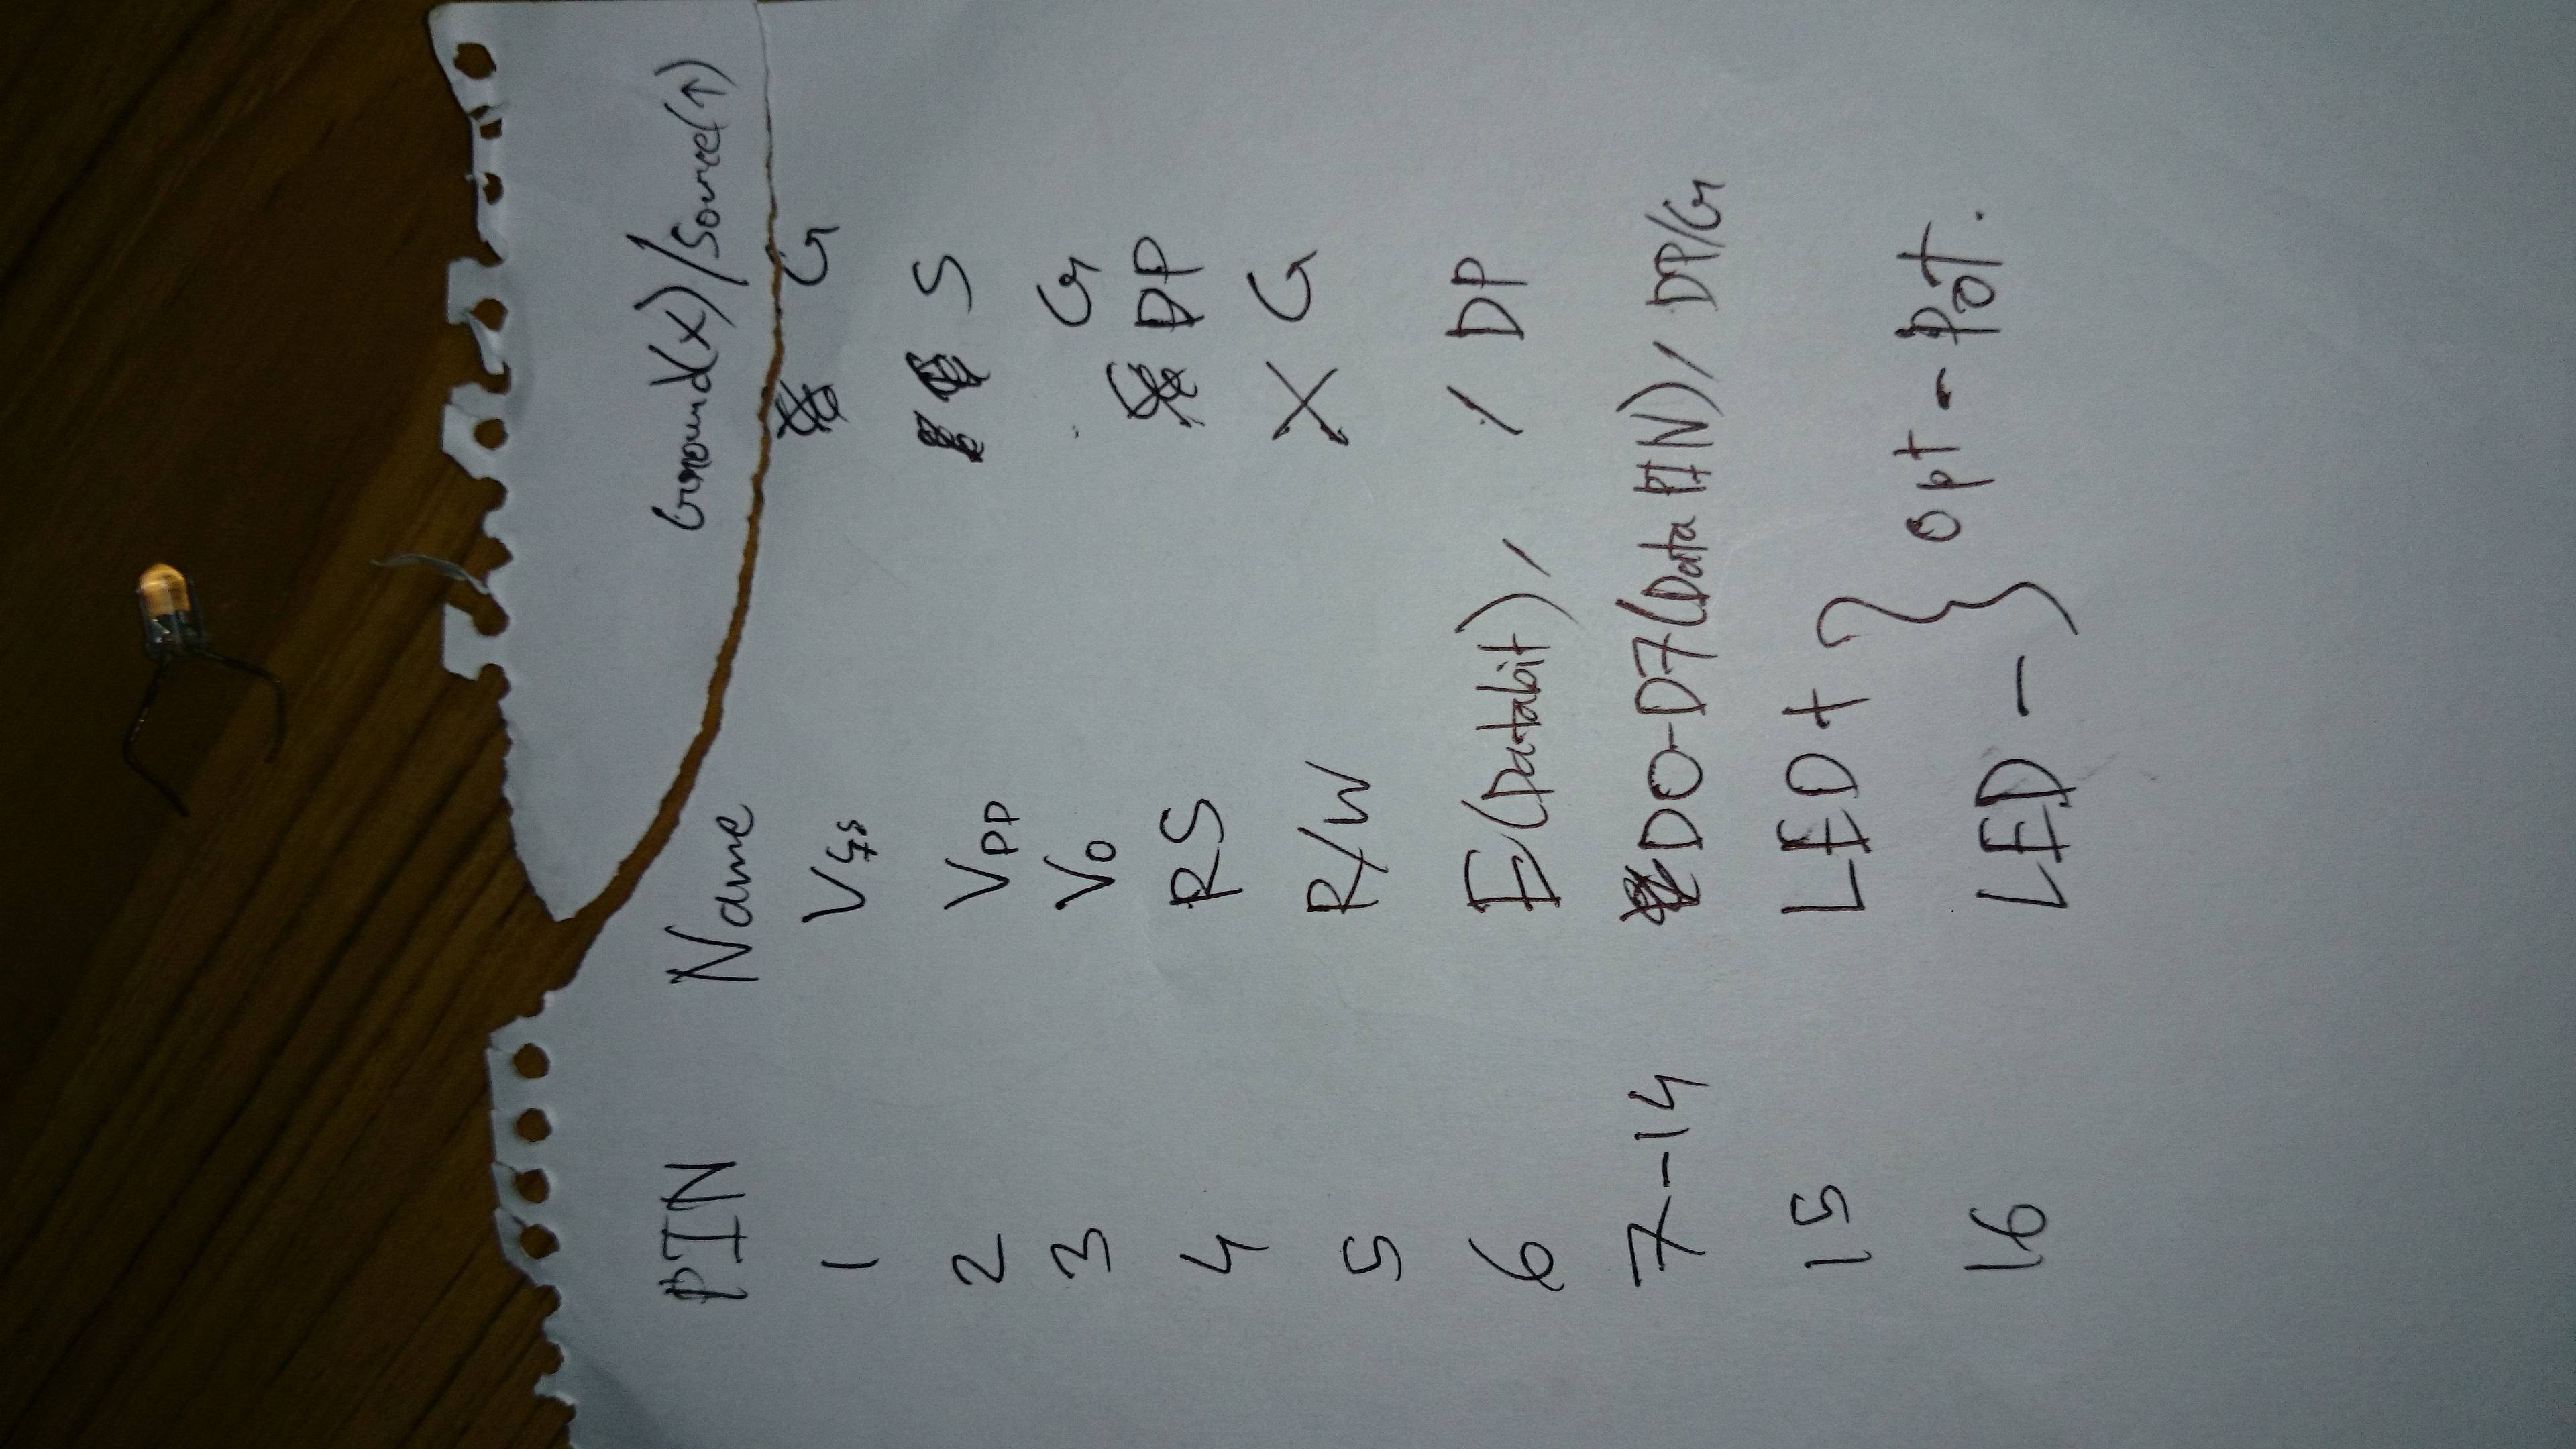 PIN Name Ground(X)/Source(↑)
1 Vss G
2 VPP S
3 Vo G
4 RS DP
5 R/W X G
6 E(Databit), / DP
7-14 D0-D7(Data PIN)/ DP/G
15 LED +
opt - Pot.
16 LED -